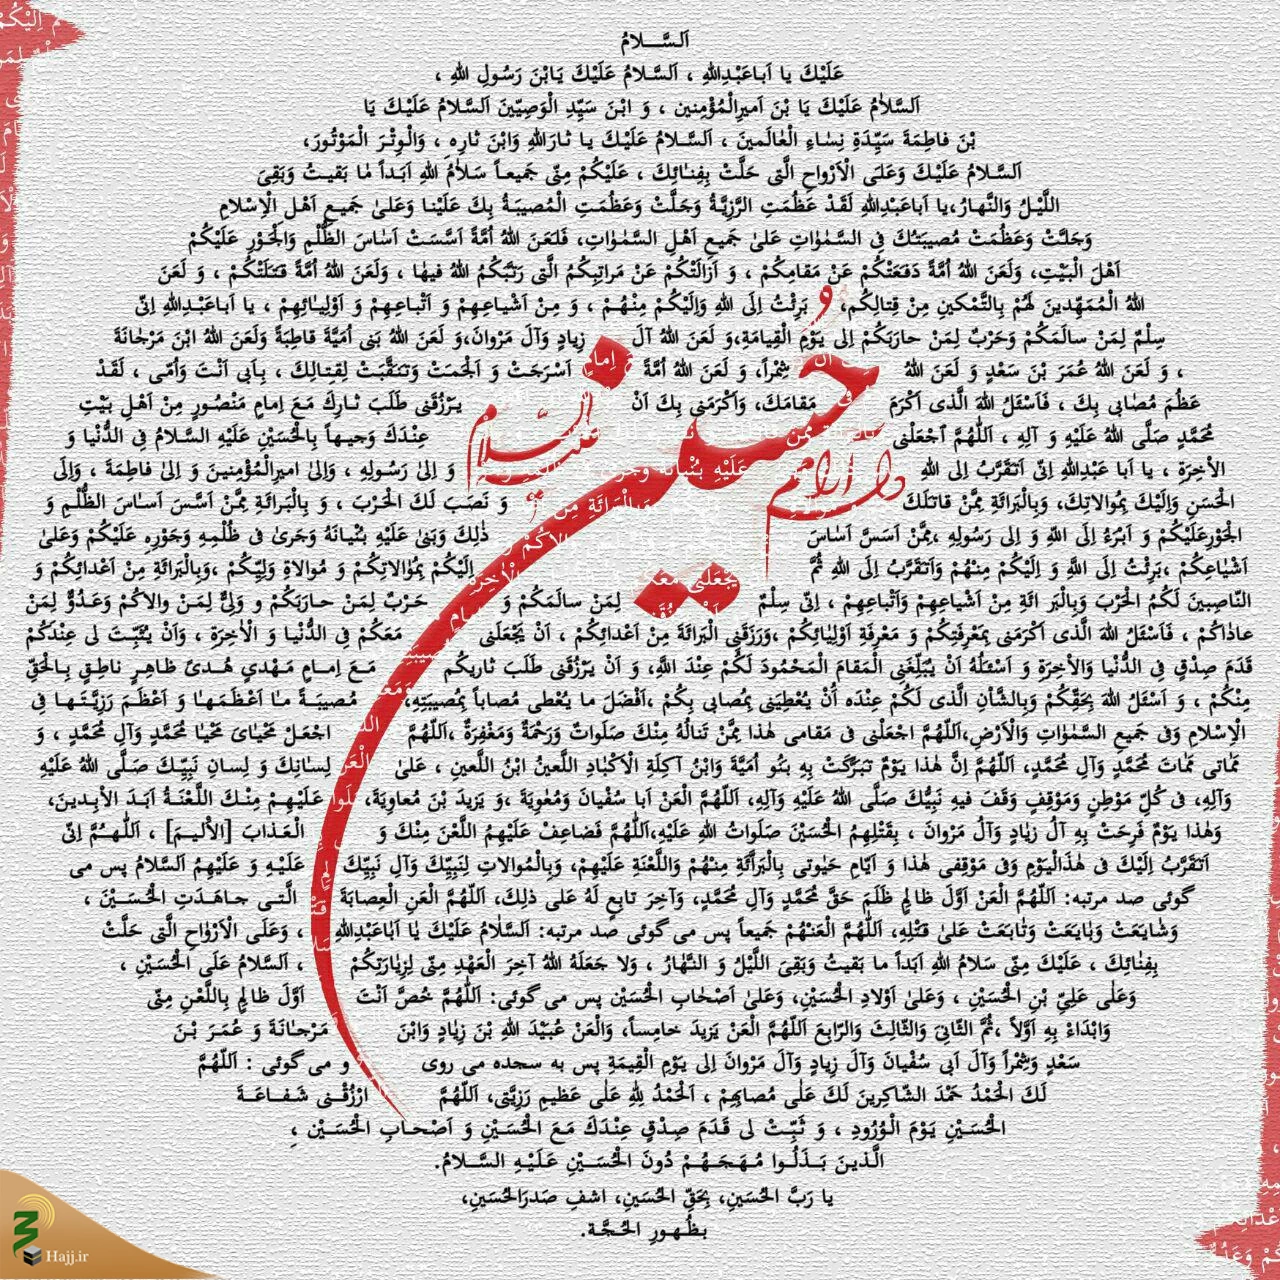 اَلسَّـــلامُ
عَلَيْكَ يا اَباعَبْدِاللهِ ، اَلسَّـلامُ عَلَيْكَ يَابْنَ رَسُولِ اللهِ ،
اَلسَّلاٰمُ عَلَيْكَ يَا بْنَ اَميرِالْمُؤْمِنين ، وَ ابْنَ سَيِّدِ الْوَصِيّينَ اَلسَّـلامُ عَلَيْـكَ يَا
بْنَ فاطِمَةَ سَيِّدَةِ نِساءِ الْعٰالَمينَ ، اَلسَّـلامُ عَلَيْكَ يـا ثـارَاللهِ وَابْنَ ثارِهِ ، وَالْوِتْـرَ الْمَوْتُورَ،
اَلسَّلامُ عَلَيْكَ وَعَلَى الْاَرْواحِ الَّتى حَلَّتْ بِفِنـٰائِكَ ، عَلَيْكُمْ مِنّى جَميعـاً سَـلاٰمُ اللهِ اَبَـداً مٰا بَقيـتُ وَبَقِىَ
اللَّيْـلُ وَالنَّهـارُ،يا اَباعَبْدِاللهِ لَقَدْ عَظُمَتِ الرَّزِيَّةُ وَجَلَّتْ وَعَظُمَتِ الْمُصيبَـةُ بِكَ عَلَيْنـا وَعَلىٰ جَميـعِ اَهْـل الْاِسْلامِ
وَجَلَّتْ وَعَظُمَتْ مُصيبَتُكَ فِى السَّـمٰوٰاتِ عَلىٰ جَميعِ اَهْـلِ السَّمٰوٰاتِ، فَلَعَنَ اللهُ اُمَّةً اَسَّسَتْ اَسٰاسَ الظُّلْمِ وَالْجَوْرِ عَلَيْكُمْ
اَهْلَ الْبَيْتِ، وَلَعَنَ اللهُ اُمَّةً دَفَعَتْكُمْ عَنْ مَقامِكُمْ ، وَ اَزالَتْكُمْ عَنْ مَراتِبِكُمُ الَّتى رَتَّبَكُمُ اللهُ فيهٰا ، وَلَعَنَ اللهُ اُمَّةً قَتَلَتْكُمْ ، وَ لَعَنَ
اللهُ الْمُمَهِّدينَ لَهُمْ بِالتَّمْكينِ مِنْ قِتالِكُم، بَرِئْتُ اِلَى اللهِ وَاِلَيْكُمْ مِنْهُـمْ ، وَ مِـنْ اَشْياعِـهِمْ وَ اَتْباعِـهِمْ وَ اَوْلِيـٰائِهِمْ ، يا اَباعَبْـدِاللهِ اِنّى
سِلْمٌ لِمَنْ سالَمَكُمْ وَحَرْبٌ لِمَنْ حارَبَكُمْ اِلى يَوْمِ الْقِيامَةِ،وَ لَعَنَ اللهُ آلَ زِيادٍ وَآلَ مَرْوانَ،وَ لَعَنَ اللهُ بَنى اُمَيَّةَ قاطِبَةً وَلَعَنَ اللهُ ابْنَ مَرْجٰانَةَ
، وَ لَعَنَ اللهُ عُمَرَ بْنَ سَعْدٍ وَ لَعَنَ اللهُ شِمْراً، وَ لَعَنَ اللهُ اُمَّةً اَسْرَجَتْ وَ اَلْجَمَتْ وَتَنَقَّبَتْ لِقِتـٰالِكَ ، بِـاَبى اَنْتَ وَاُمّى ، لَقَـدْ
عَظُمَ مُصٰابى بِكَ ، فَاَسْئَلُ اللهَ الَّذى اَكْرَمَ مَقامَكَ، وَاَكْرَمَنى بِكَ اَنْ يَـرْزُقَنى طَلَبَ ثـارِكَ مَـعَ اِمامٍ مَنْصُـورٍ مِنْ اَهْـلِ بَيْتِ
مُحَمَّدٍ صَلَّى اللهُ عَلَيْهِ وَ آلِهِ ، اَللّٰهُمَّ اجْعَلْنى عِنْدَكَ وَجيهـاً بِالْحُسَيْنِ عَلَيْهِ السَّـلامُ فِى الدُّنْيا وَ
الآخِرَةِ ، يا اَبا عَبْدِاللهِ اِنّى اَتَقَرَّبُ اِلى اللهِ وَ اِلىٰ رَسُـولِهِ ، وَاِلىٰ اميرِالْمُؤْمِنينَ وَ اِلىٰ فاطِمَةَ ، وَاِلَى
الْحَسَنِ وَاِلَيْكَ بِمُوالاتِكَ، وَبِالْبَرائَةِ مِمَّنْ قاتَلَكَ وَ نَصَبَ لَكَ الْحَرْبَ ، وَ بِالْبَرائَةِ مِمَّنْ اَسَّسَ اَسٰاسَ الظُّلْـمِ وَ
الْجَوْرِعَلَيْكُمْ وَ اَبْرَءُ اِلَى اللهِ وَ اِلى رَسُولِهِ ،مِمَّنْ اَسَسَّ اَسٰاسَ ذٰلِكَ وَبَنىٰ عَلَيْهِ بُنْيـانَهُ وَجَرىٰ فى ظُلْمِـهِ وَجَوْرِهِ عَلَيْكُمْ وَعَلىٰ
اَشْيٰاعِكُمْ ،بَرِئْتُ اِلَى اللهِ وَ اِلَيْكُمْ مِنْهُمْ وَاَتَقَرَّبُ اِلَى اللهِ ثُمَّ اِلَيْكُمْ بِمُوٰالاتِكُمْ وَ مُوالاةِ وَلِيِّكُمْ ،وَبِالْبَرائَةِ مِنْ اَعْدائِكُمْ وَ
النّاصِبينَ لَكُمُ الْحَرْبَ وَبِالْبَر ائَةِ مِنْ اَشْياعِهِمْ وَاَتْباعِهِمْ ، اِنّى سِلْمٌ لِمَنْ سالَمَكُمْ وَ حَـرْبٌ لِمَنْ حـارَبَكُمْ وَ وَلِىٌّ لِمَـنْ والاكُمْ وَعَـدُوٌّ لِمَنْ
عاداكُمْ ، فَاَسْئَلُ اللهَ الَّذى اَكْرَمَنى بِمَعْرِفَتِكُمْ وَ مَعْرِفَةِ اَوْلِيٰائِكُمْ ،وَرَزَقَنِى الْبَرائَةَ مِنْ اَعْدائِكُمْ ، اَنْ يَجْعَلَنى مَعَكُمْ فِى الدُّنْيا وَ الْاٰخِرَةِ ، وَاَنْ يُثَبِّـتَ لى عِنْدَكُمْ
قَدَمَ صِدْقٍ فِى الدُّنْيا وَالآخِرَةِ وَ اَسْئَلُهُ اَنْ يُبَلِّغَنِى الْمَقامَ الْمَحْمُودَ لَكُمْ عِنْدَ اللهِ، وَ اَنْ يَرْزُقَنى طَلَبَ ثاريكُم مَـعَ اِمـامٍ مَـهْدىٍ هُـدىً ظاهِـرٍ ناطِـقٍ بِـالْحَقِّ
مِنْكُمْ ، وَ اَسْئَلُ اللهَ بِحَقِّكُمْ وَبِالشَّأنِ الَّذى لَكُمْ عِنْدَه أَنْ يُعْطِيَنى بِمُصابى بِكُمْ ،اَفْضَلَ ما يُعْطى مُصاباً بِمُصيبَتِهِ، مُصيبَـةً مـٰا اَعْظَـمَهـٰا وَ اَعْظَـمَ رَزِيَّتَـهـا فِى
الْاِسْلامِ وَفى جَميعِ السَّمٰوٰاتِ وَالْاَرْضِ،اَللّهُمَّ اجْعَلْنى فى مَقامى هٰذا مِمَّنْ تَنالُهُ مِنْكَ صَلَواتٌ وَرَحْمَةٌ وَمَغْفِرَةٌ ،اَللّهُمَّ اجْعَـلْ مَحْيـٰاىَ مَحْيـٰا مُحَمَّدٍ وَآلِ مُحَمَّدٍ ، وَ
مَماتى مَمٰاتَ مُحَمَّدٍ وَآلِ مُحَمَّدٍ، اَللّهُمَّ اِنَّ هٰذا يَوْمٌ تَبَرَّكَتْ بِهِ بَنُو اُمَيَّةَ وَابْنُ آكِلَةِ الْاَكْبٰادِ اللَّعينُ ابْنُ اللَّعينِ ، عَلىٰ لِسـٰانِكَ وَ لِسانِ نَبِيِّـكَ صَلَّى اللهُ عَلَيْهِ
وَآلِهِ، فى كُلِّ مَوْطِنٍ وَمَوْقِفٍ وَقَفَ فيهِ نَبِيُّكَ صَلَّى اللهُ عَلَيْهِ وَآلِهِ، اَللّهُمَّ الْعَنْ اَبا سُفْيانَ وَمُعٰوِيَةَ ،وَ يَزيدَ بْنَ مُعاوِيَةَ، عَلَيْـهِمْ مِنْـكَ اللَّعْنَـةُ اَبَـدَ الآبِـدينَ،
وَهٰذا يَوْمٌ فَرِحَتْ بِهِ آلُ زِيٰادٍ وَآلُ مَرْوانَ ، بِقَتْلِهِمُ الْحُسَيْنَ صَلَواتُ اللهِ عَلَيْهِ،اَللّهُمَّ فَضاعِفْ عَلَيْهِمُ اللَّعْنَ مِنْكَ وَ الْعَـذابَ [الأليـمَ] ، اَللّٰهُـمَّ اِنّى
اَتَقَرَّبُ اِلَيْكَ فى هٰذَالْيَوْمِ وَفى مَوْقِفى هٰذا وَ اَيّامِ حَيٰوتى بِالْبَرآئَةِ مِنْهُمْ وَاللَّعْنَةِ عَلَيْهِمْ، وَبِالْمُوالاتِ لِنَبِيِّكَ وَآلِ نَبِيِّكَ عَلَيْـهِ وَ عَلَيْهِمُ اَلسَّلامُ پس می
گوئی صد مرتبه: اَللّهُمَّ الْعَنْ اَوَّلَ ظالِمٍ ظَلَمَ حَقَّ مُحَمَّدٍ وَآلِ مُحَمَّدٍ، وَآخِرَ تابِعٍ لَهُ عَلى ذلِكَ، اَللّهُمَّ الْعَنِ الْعِصابَةَ الَّتـى جـاهَـدَتِ الْحُسَـيْـنَ ،
وَشٰايَعَتْ وَبٰايَعَتْ وَتٰابَعَتْ عَلىٰ قَتْلِهِ، اَللّٰهُمَّ الْعَنْهُمْ جَميعاً پس می گوئی صد مرتبه: اَلسَّلاٰمُ عَلَيْكَ يٰا اَبٰاعَبْدِاللهِ ، وَعَلَى الْاَرْوٰاحِ الَّتى حَلَّتْ
بِفِنٰائِكَ ، عَلَيْكَ مِنّى سَلامُ اللهِ اَبَداً ما بَقيتُ وَبَقِىَ اللَّيْلُ وَ النَّهٰارُ ، وَلا جَعَلَهُ اللهُ آخِرَ الْعَهْدِ مِنّى لِزِيٰارَتِكُمْ ، اَلسَّلامُ عَلَى الْحُسَيْنِ ،
وَعَلٰى عَلِىِّ بْنِ الْحُسَيْنِ ، وَعَلىٰ اَوْلادِ الْحُسَيْنِ، وَعَلىٰ اَصْحٰابِ الْحُسَيْنِ پس می گوئی: اَللّٰهُمَّ خُصَّ اَنْتَ اَوَّلَ ظالِمٍ بِاللَّعْنِ مِنّى
وَابْدَاءْ بِهِ اَوَّلاً ،ثُمَّ الثّانِىَ وَالثّالِثَ وَالرّابِعَ اَللّهُمَّ الْعَنْ يَزيدَ خامِساً، وَالْعَنْ عُبَيْدَ اللهِ بْنَ زِيٰادٍ وَابْنَ مَرْجـٰانَةَ وَ عُمَـرَ بْـنَ
سَعْدٍ وَشِمْراً وَآلَ اَبى سُفْيانَ وَآلَ زِيادٍ وَآلَ مَرْوانَ اِلى يَوْمِ الْقِيمَةِ پس به سحده می روی و می گوئی : اَللّٰهُمَّ
لَكَ الْحَمْدُ حَمْدَ الشّاكِرينَ لَكَ عَلٰى مُصابِهِمْ ، اَلْحَمْدُ لِلّٰهِ عَلٰى عَظيمِ رَزِيَّتى، اَللّٰهُمَّ ارْزُقْـنى شَـفـاعَـةَ
الْحُسَيْنِ يَوْمَ الْوُرُودِ ، وَ ثَبِّـتْ لى قَدَمَ صِـدْقٍ عِنْدَكَ مَـعَ الْحُسَيْنِ وَ اَصْحـابِ الْحُسَـيْن ِ
الَّذيـنَ بَـذَلُـوا مُـهَـجَـهُـمْ دُونَ الْحُسَـيْـنِ عَلَيْـهِ السَّــلامُ.
يا رَبَّ الحُسَينِ، بِحَقِّ الحُسَينِ، اشفِ صَدرَالحُسَينِ،
بـظُـهـورِ الحُـجَّـة.
حُسين
دارآرامم
Hajj.ir